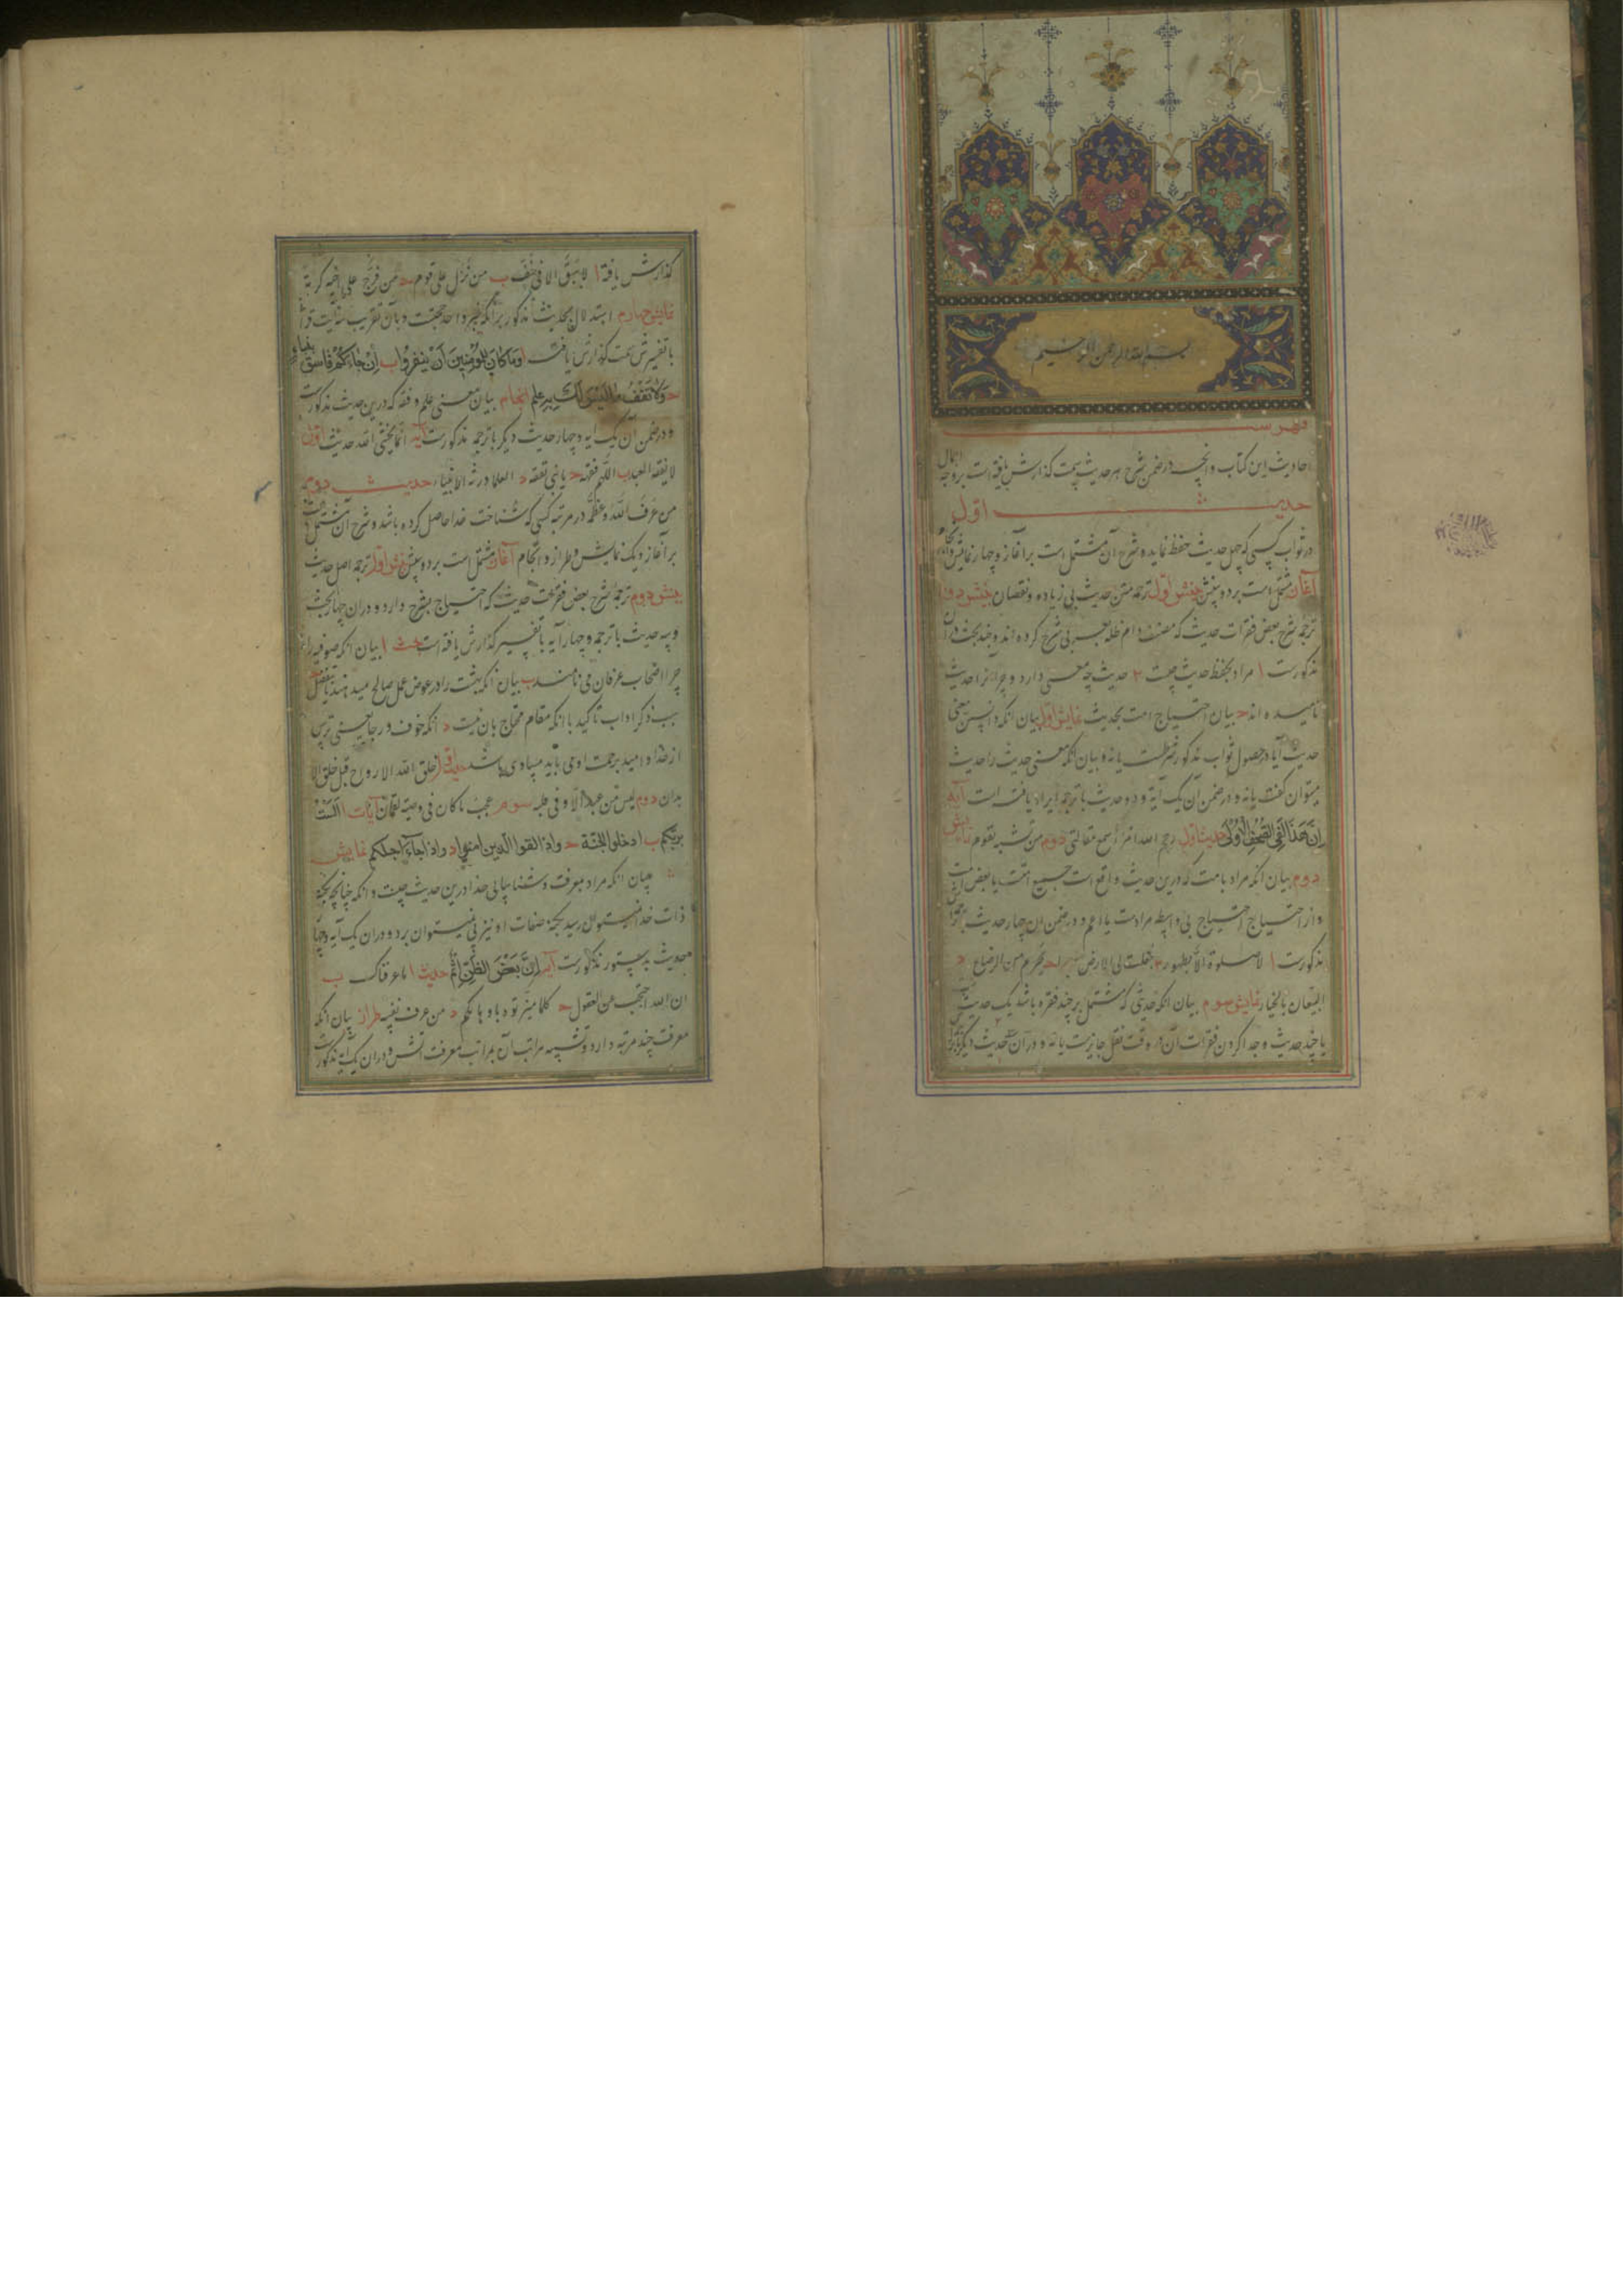 بسم الله الرحمن الرحیم
فهرست
احادیث این کتاب و آنچه در ضمن شرح هر حدیث سمت گذارش یافته است بر وجه اجمال
حدیث اول
در ثواب کسی که چهل حدیث حفظ نماید و شرح آن مشتمل است بر آغاز و چهار نمایش و انجام
آغاز مشتمل است بر دو بینش بینش اول ترجمه متن حدیث بی زیاده و نقصان بینش دوم
ترجمه شرح بعض فقرات حدیث که مصنف دام ظله بعربی شرح کرده اند و چند بحث در آن
مذکورست ا مراد بحفظ حدیث چیست ۲ حدیث چه معنی دارد و چرا آنرا حدیث
نامیده اند ح بیان احتیاج امت بحدیث نمایش اول بیان آنکه دانستن معنی
حدیث آیا در حصول ثواب مذکور شرطست یا نه و بیان آنکه معنی حدیث را حدیث
میتوان گفت یا نه و در ضمن آن یک آیه و دو حدیث با ترجمه ایراد یافته است آیه
إن هذا لفی الصحف الأولی حدیث اول رحم الله امرأ سمع مقالتی دوم من تشبه بقوم نمایش
دوم بیان آنکه مراد بامت که درین حدیث واقع است جمیع امت یا بعض امت
و از احتیاج احتیاج بی واسطه مرادست یا اعم و در ضمن آن چهار حدیث با ترجمه
مذکورست ا لا صلوة الا بطهور ۲ جعلت لی الارض ح یحرم من الرضاع د
البیعان بالخیار نمایش سوم بیان آنکه حدیثی که مشتمل بر چند فقره باشد یک حدیث
یا چند حدیث و جدا کردن فقرات آن در وقت نقل جایزست یا نه و در آن سه حدیث دیگر
گذارش یافته ا لا سبق الا فی خف ب من نزل علی قوم ح من فرج علی اخیه کربة
نمایش چهارم استدلال بحدیث مذکور بر آنکه خبر واحد حجتست و بآن تقریب سه آیت
با تفسیرش سمت گذارش یافت ا وما کان المؤمنین أن ینفروا ب إن جاءکم فاسق بنبأ
ح ولا تقف ما لیس لک به علم انجام بیان معنی علم و فقه که درین حدیث مذکورست
و در ضمن آن یک آیه و چهار حدیث دیگر با ترجمه مذکورست آیه انما یخشی الله حدیث اول
لا یفقه العبد ب اللهم فقهه ح یا بنی تفقه د العلما ورثه الانبیاء حدیث دوم
من عرف الله و عظمه در مرتبه کسی که شناخت خدا حاصل کرده باشد و شرح آن مشتمل است
بر آغاز و یک نمایش و طراز و انجام آغاز مشتمل است بر دو بینش بینش اول ترجمه اصل حدیث
بینش دوم ترجمه شرح بعض فقرات حدیث که احتیاج بشرح دارد و در آن چهار بحث
و سه حدیث با ترجمه و چهار آیه با تفسیر گذارش یافته است بحث ا بیان آنکه صوفیه را
چرا اصحاب عرفان می نامند ب بیان آنکه بهشت را در عوض عمل صالح میدهند یا بتفضل
سبب ذکر ادات تأکید با آنکه مقام محتاج بآن نیست د آنکه خوف و رجا یعنی ترس
از خدا و امید برحمت او می باید مساوی باشد حدیث اول خلق الله الارواح قبل خلق الا
بدان دوم لیس من عبد الا و فی قلبه سوم عجب ما کان فی وصیة لقمان آیات ا ألست
بربکم ب ادخلوا الجنة ح واذا لقوا الذین آمنوا د واذا جاء اجلکم نمایش
بیان آنکه مراد بمعرفت و شناسایی خدا درین حدیث چیست و آنکه چنانچه بکنه
ذات خدا نمیتوان رسید بکنه صفات او نیز پی نمیتوان برد و در آن یک آیه و چهار
حدیث بدستور مذکورست آیه إن بعض الظن إثم حدیث ا ما عرفناک ب
ان الله احتجب من العقول ح کلما میزتموه باوهامکم د من عرف نفسه طراز بیان آنکه
معرفت چند مرتبه دارد و تشبیه مراتب آن بمراتب معرفت آتش و در آن یک آیه مذکورست